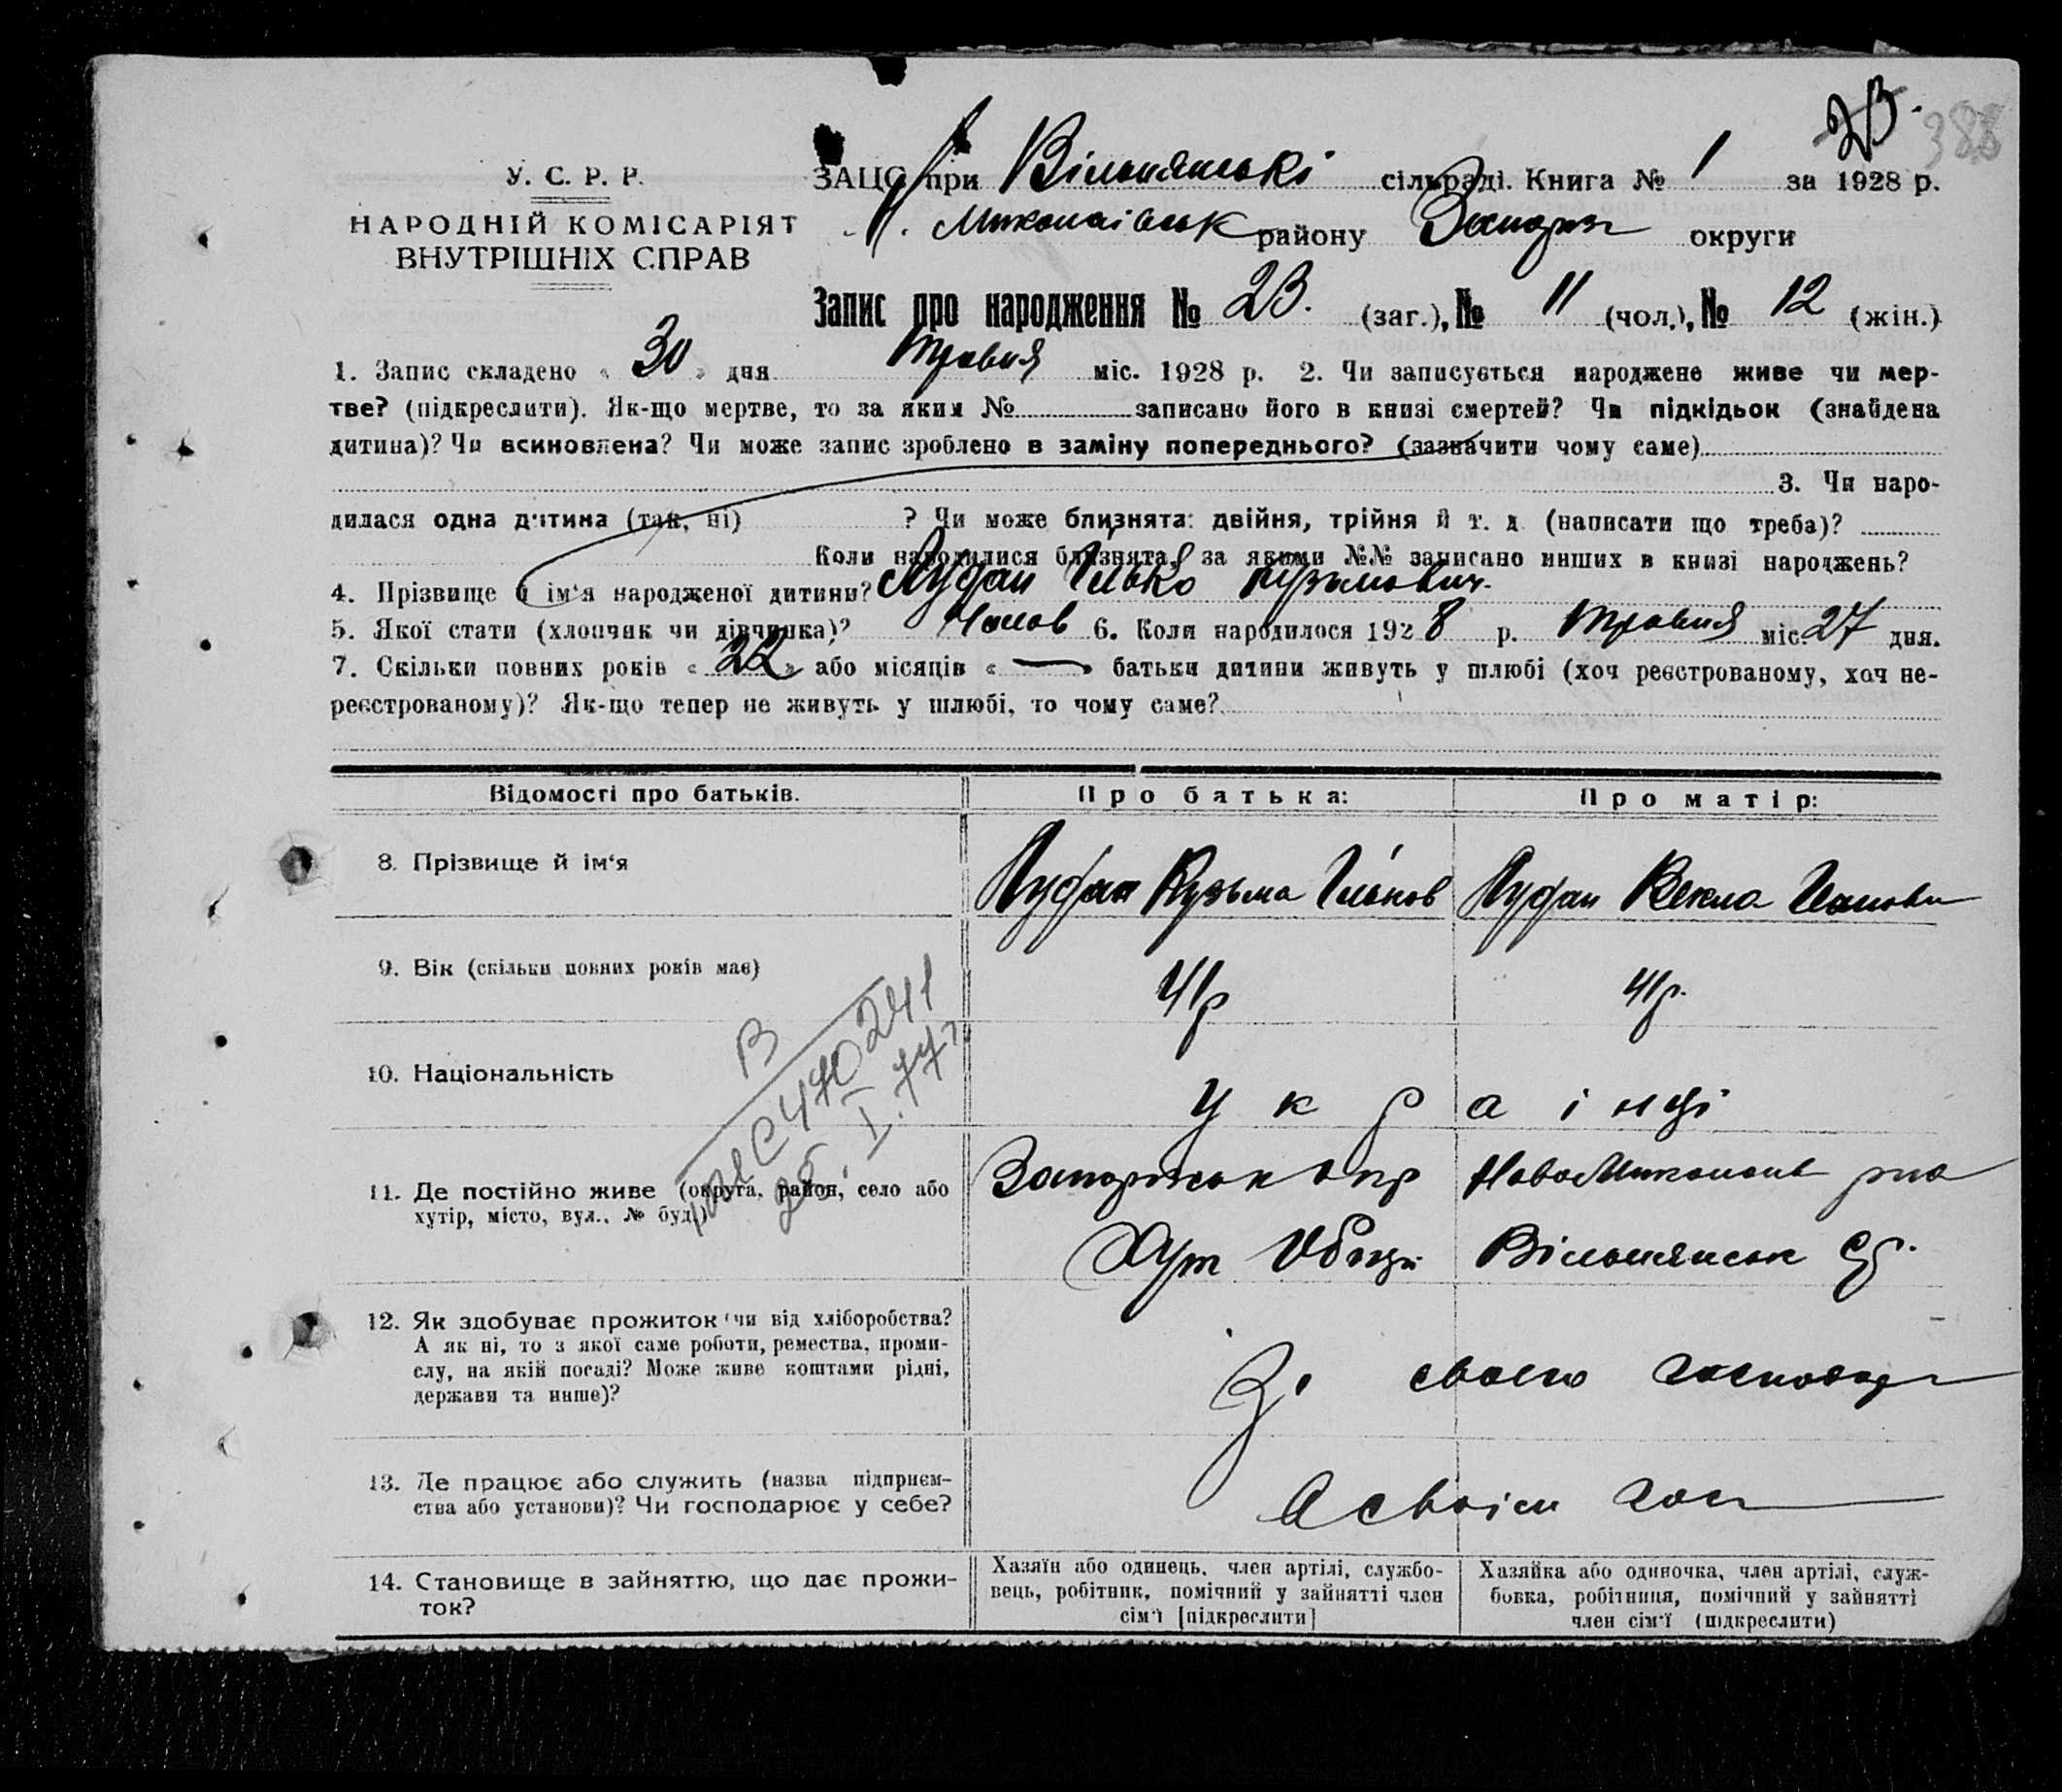 23. 388
У. С. Р. Р.
НАРОДНІЙ КОМІСАРІЯТ
ВНУТРІШНІХ СПРАВ
ЗАЦС при Вільнянські сільраді. Книга № 1 за 1928 р.
Н. Миколаівськ району Запоріз округи
Запис про народження № 23. (заг.), № 11 (чол.), № 12 (жін.)
1. Запис складено « 30 » дня травня міс. 1928 р. 2. Чи записується народжене живе чи мер-
тве? (підкреслити). Як-що мертве, то за яким № записано його в книзі смертей? Чи підкідьок (знайдена
дитина)? Чи всиновлена? Чи може запис зроблено в заміну попереднього? (зазначити чому саме)
3. Чи наро-
дилася одна дитина (так, ні) ? Чи може близнята: двійня, трійня й т. д. (написати що треба)?
Коли народилися близнята, за якими №№ записано инших в книзі народжень?
4. Прізвище й ім'я народженої дитини? Ілько Кузьмович.
5. Якої стати (хлопчик чи дівчинка)? Чолов 6. Коли народилося 1928 р. травня міс. 27 дня.
7. Скільки повних років « 22 » або місяців « — » батьки дитини живуть у шлюбі (хоч реєстрованому, хоч не-
реєстрованому)? Як-що тепер не живуть у шлюбі, то чому саме?
Відомості про батьків. Про батька: Про матір:
8. Прізвище й ім'я Кузьма Ільков Векла Івановн
9. Вік (скільки повних років має) 41р 41р.
10. Національність українці
В
470241
25. I. 77
11. Де постійно живе (округа, район, село або
хутір, місто, вул., № буд.)
Запоріськ окр НовоМиколаів рна
Хут Вільнянськ ср.
12. Як здобуває прожиток чи від хліборобства?
А як ні, то з якої саме роботи, ремества, проми-
слу, на якій посаді? Може живе коштами рідні,
держави та инше)?
Зі своего господар
13. Де працює або служить (назва підприєм-
ства або установи)? Чи господарює у себе?
в своїм госп
14. Становище в зайняттю, що дає прожи-
ток?
Хазяїн або одинець, член артілі, службо-
вець, робітник, помічний у зайнятті член
сім'ї [підкреслити]
Хазяйка або одиночка, член артілі, служ-
бовка, робітниця, помічний у зайнятті
член сім'ї (підкреслити)